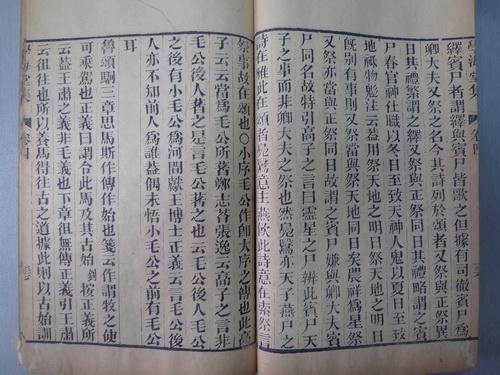 學海堂集 卷四
繹賓尸者謂繹與賓尸皆歌之但據有司徹賓尸爲
卿大夫又祭之名今其詩列於頌者又祭與正祭異
日其禮繁謂之繹又祭與正祭同日其禮略謂之賓
尸春官神仕職以冬日至致天神人鬼以夏日至致
地祇物鬽注云葢用祭天地之明日祭天地之明日
旣別有事則又祭與祭天地同日矣農祥爲星祭
又祭亦當與正祭同日故謂之賓尸嫌與卿大夫賓
尸同名故特引高子之言曰靈星之尸辨此賓尸天
子之事而非卿大夫之祭也然鳧鷖亦天子燕尸之
詩在雅此在頌者鳧鷖意主燕飲此詩意在索祭言
祭事故在頌也○小序毛公作師大序之傳也此高
子云云當爲毛公所著鄭志荅張逸云高子之言非
毛公後人著之是言毛公著之也云毛公後人毛公
之後有小毛公爲河間獻王博士正義云言毛公後
人亦不知前人爲誰益偶未悟小毛公之前有毛公
耳
魯頌駉三章思馬斯作傳作始也箋云作謂牧之使
可乘駕也正義曰謂令此馬及其古始 釗按正義所
云云葢王肅之義非毛義也下章徂無傳正義引王肅
云徂往也所以養馬得往古之道據此則以古始訓
學海堂集 卷四